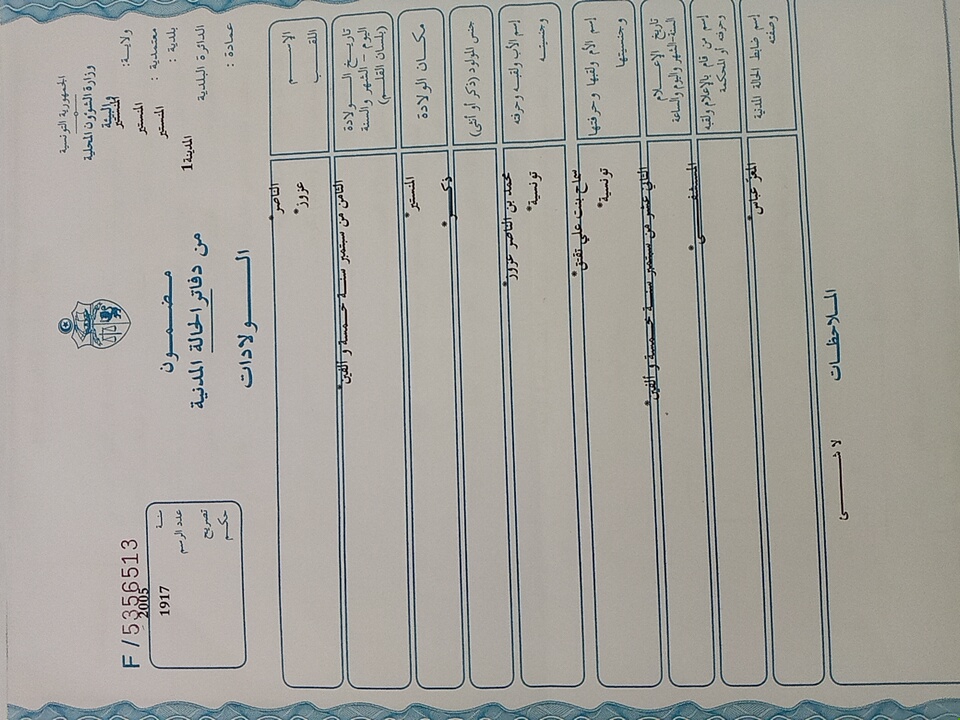 الجمهورية التونسية
وزارة الشؤون المحلية
والبيئة
ولاية: المنستير
معتمدية : المنستير
بلدية : المنستير
الدائرة البلدية المدينة1
عمادة :
مضمون
من دفاتر الحالة المدنية
الولادات
F/5356513
سنة 2005
عدد الرسم 1917
تصريح
حكم
الإسم الناصر*
اللقب عزوز*
تاريخ الولادة
(اليوم - الشهر والسنة
بلسان القلم) الثامن من سبتمبر سنة خمسة و ألفين*
مكان الولادة المنستير*
جنس المولود (ذكر أو أنثى) ذكر*
إسم الأب ولقبه وحرفته محمد بن الناصر عزوز*
وجنسيته تونسية*
إسم الأم ولقبها وحرفتها سماح بنت علي تقتق*
وجنسيتها تونسية*
تاريخ الإعلام
السنة-الشهر واليوم والساعة الثاني عشر من سبتمبر سنة خمسة و ألفين*
إسم من قام بالإعلام ولقبه
وحرفته أو المحكمة المستشفى*
إسم ضابط الحالة المدنية
وصفته المعز عباس*
الملاحظات
لا شيء